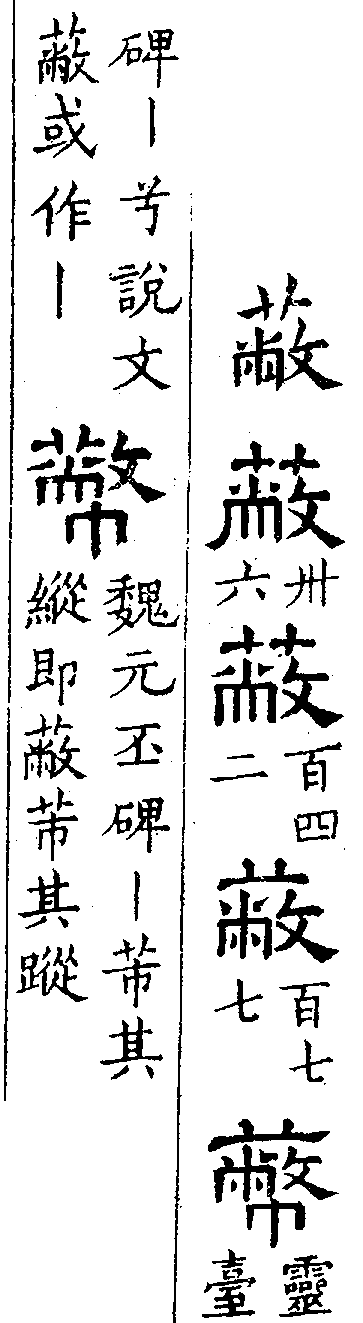 蔽
蔽
卅
六
蔽
百四
二
蔽
百七
七
靈
臺
碑丨說文
蔽或作丨
魏元丕碑丨芾其
縱即蔽芾其蹤